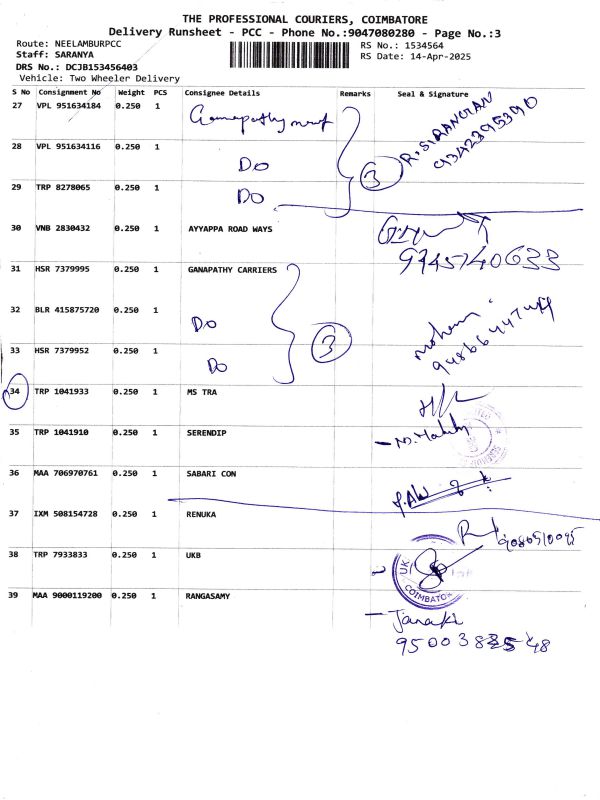 THE PROFESSIONAL COURIERS, COIMBATORE
Delivery Runsheet - PCC - Phone No.:9047080280 - Page No.:3
Route: NEELAMBURPCC
Staff: SARANYA
DRS No.: DCJB153456403
Vehicle: Two Wheeler Delivery
RS No.: 1534564
RS Date: 14-Apr-2025
S No Consignment No Weight PCS Consignee Details Remarks Seal & Signature
27 VPL 951634184 0.250 1 Ganapathy
R.SIRANGAN
9342395390
28 VPL 951634116 0.250 1 Do
3
29 TRP 8278065 0.250 1 Do
30 VNB 2830432 0.250 1 AYYAPPA ROAD WAYS
9745740633
31 HSR 7379995 0.250 1 GANAPATHY CARRIERS
32 BLR 415875720 0.250 1 Do
3
33 HSR 7379952 0.250 1 Do
34 TRP 1041933 0.250 1 MS TRA
35 TRP 1041910 0.250 1 SERENDIP
36 MAA 706970761 0.250 1 SABARI CON
37 IXM 508154728 0.250 1 RENUKA
38 TRP 7933833 0.250 1 UKB
UK
COIMBATO
39 MAA 9000119200 0.250 1 RANGASAMY
Janaki